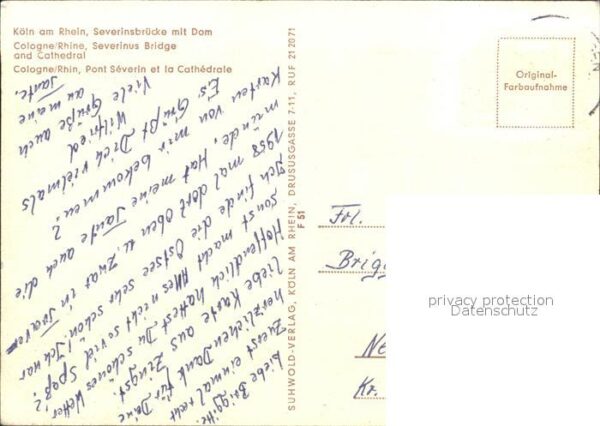 Köln am Rhein, Severinsbrücke mit Dom
Cologne/Rhine, Severinus Bridge
and Cathedral
Cologne/Rhin, Pont Séverin et la Cathédrale
Original-
Farbaufnahme
SUHWOLD-VERLAG, KÖLN AM RHEIN, DRUSUSGASSE 7-11, RUF 21 20 71
F 51
Liebe Brigitte.
Zuerst einmal recht
herzlichen Dank für Deine
liebe Karte aus Zingst.
Hoffentlich hattest Du schönes Wetter?
sonst macht Alles nicht so viel Spaß?
Ich finde die Ostsee sehr schön! Ich war
1958 mal dort oben u. zwar in Trave-
münde. Hat meine Tante auch die
Karten von mir bekommen?
Es Grüßt Dich vielmals
Wilfried
Viele Grüße auch
an meine
Tante.
Frl.
Brig
Ne
Kr.
privacy protection
Datenschutz